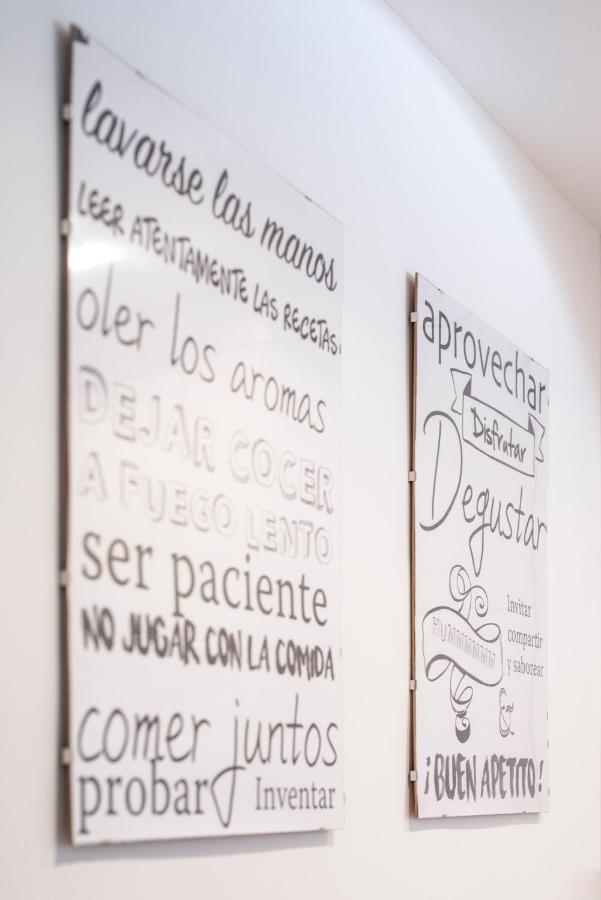 lavarse las manos
LEER ATENTAMENTE LAS RECETAS
oler los aromas
DEJAR COCER
A FUEGO LENTO
ser paciente
NO JUGAR CON LA COMIDA
comer juntos
probar y Inventar
aprovechar
Disfrutar
Degustar
Invitar
compartir
y saborear
HuMMMMMM
&
¡BUEN APETITO!